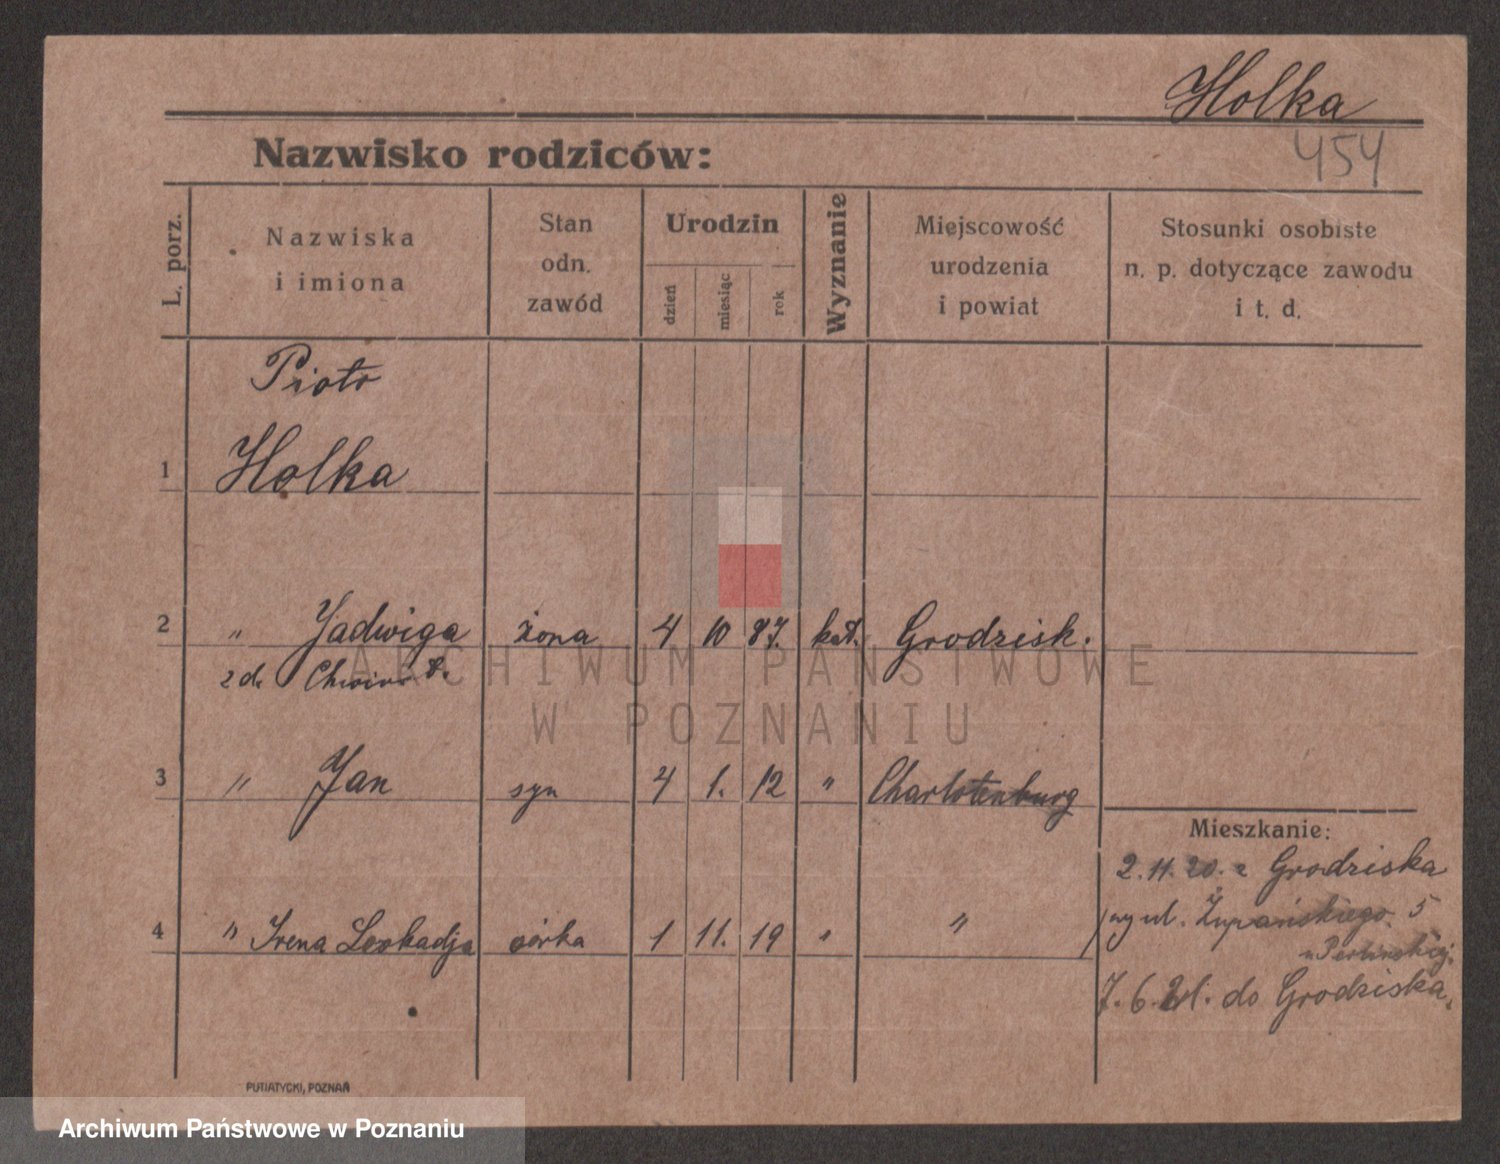 Holka
454
Nazwisko rodziców:
L. porz.
Nazwiska
i imiona
Stan
odn.
zawód
Urodzin
dzień
miesiąc
rok
Wyznanie
Miejscowość
urodzenia
i powiat
Stosunki osobiste
n. p. dotyczące zawodu
i t. d.
Piotr
1 Holka
2 " Jadwiga żona 4 10 87. kat. Grodzisk.
z d.
3 " Jan syn 4 1. 12 " Charlotenburg
Mieszkanie:
2. 11. 20. z Grodziska
ul. Żupańskiego 5
4 " Irena Leokadja córka 1 11. 19 " "
7. 6. 21. do Grodziska.
PUTIATYCKI, POZNAŃ
ARCHIWUM PAŃSTWOWE
W POZNANIU
Archiwum Państwowe w Poznaniu